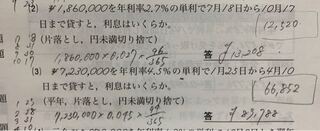 (2) ¥1,860,000を年利率2.7%の単利で7月18日から10月17
日まで貸すと，利息はいくらか。
12,520
(片落とし，円未満切り捨て)
1,860,000×0.027×96/365
答 ¥13,208
(3) ¥7,230,000を年利率4.5%の単利で1月25日から4月10
日まで貸すと，利息はいくらか。
66,852
(平年，片落とし，円未満切り捨て)
7,230,000×0.045×
365
答 ¥83,788